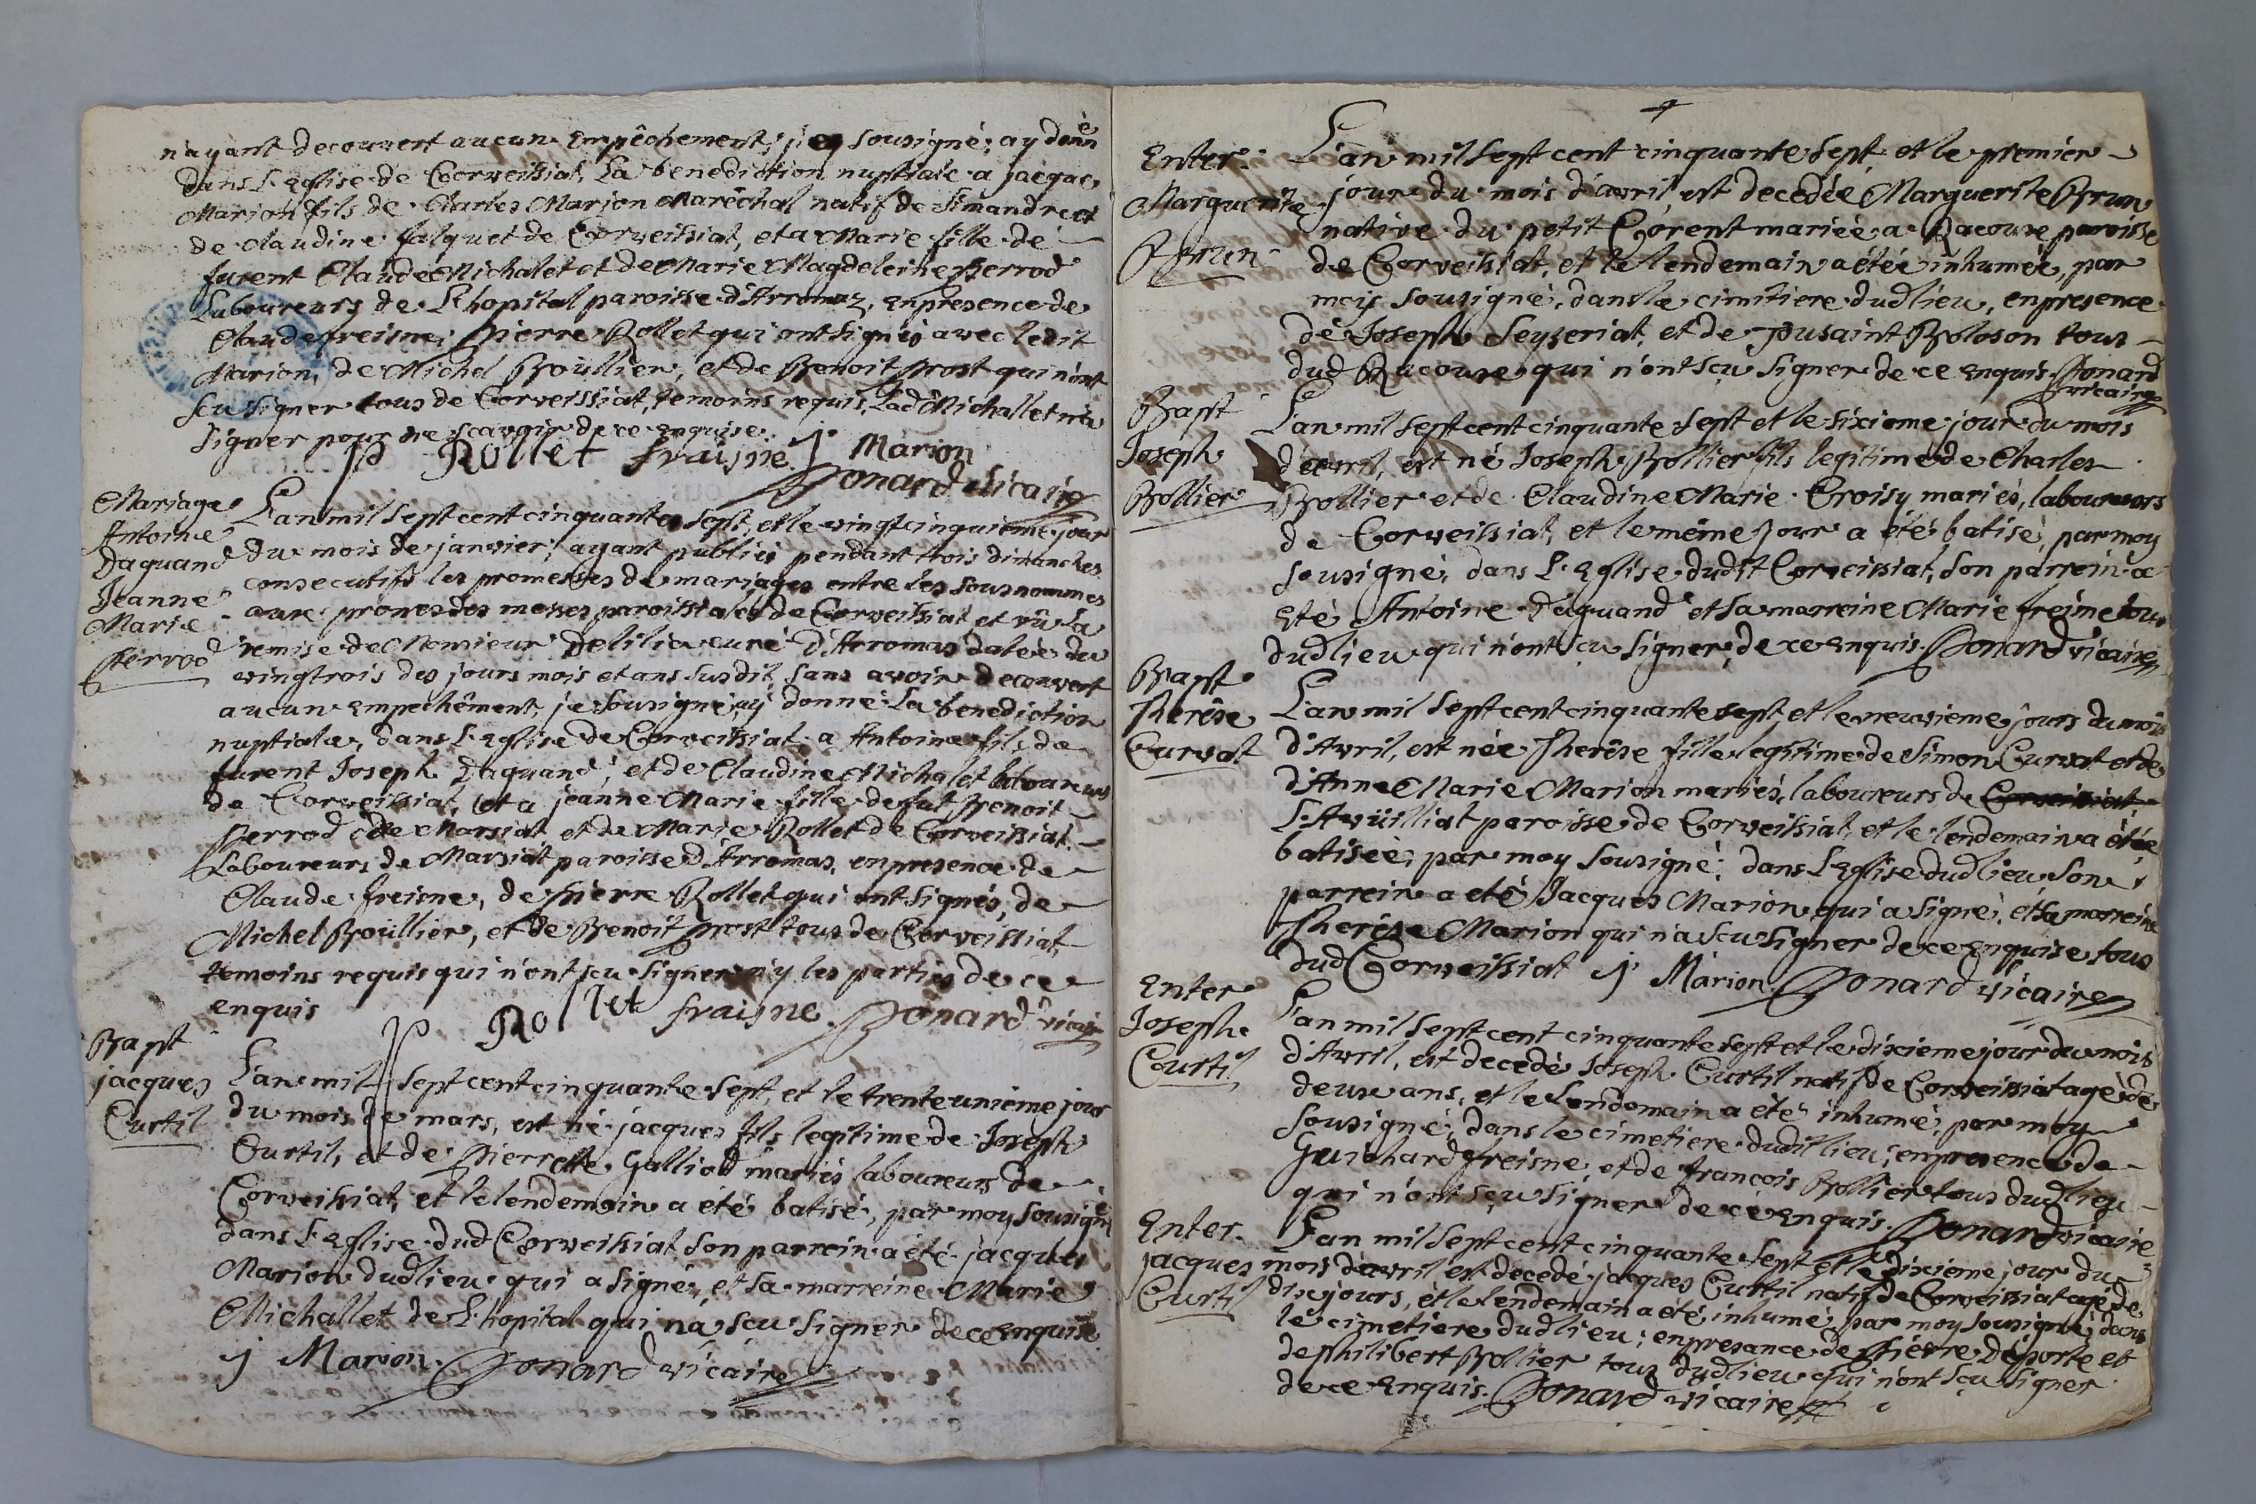 n'ayant decouvert aucun Empêchement, je sousigné, ay donné
dans L'Eglise de Corveissiat, La benediction nuptiale a jacque
Marion fils de Charles Marion Marêchal natif de Simandre et
de Claudine falquet de Corveissiat, et a Marie fille de
furent Claude Michalet et de Marie Magdeleine Perrod
Laboureurs de L'hopital paroisse d'Arromaz, en presence de
Claude freisne, pierre Rollet qui ont signés avec ledit
Marion, de Michel Boüillier, et de Benoit prost qui n'ont
sçu signer tous de Corveissiat, temoins requis, Lad Michallet n'a
signer pour ne scavoir de ce enquise.
p Rollet fraisne j Marion
Ponard vicaire
Mariage
Antoine
Daquand
Jeanne
Marie
perrod
L'an mil sept cent cinquante sept, et le vingt cinquieme jour
du mois de janvier, ayant publiés pendant trois dimanches
consecutifs les promesses de mariages entre les sousnommes
aux prones des messes paroissiales de Corveissiat et vû la
remise de Monsieur Delilia curé d'Arromas datée du
vingtrois des jours mois et ans susdit, sans avoir decouvert
aucun empechêment, je sousigné, ay donné La benediction
nuptiale, dans L'Eglise de Corveissiat a Antoine fils de
furent Joseph Daquand, et de Claudine Michalet laboureurs
de Corveissiat, et a jeanne Marie fille de fut Benoit
perrod de Marsiat et de Marie Rollet de Corveissiat
Laboureurs de Marsiat paroisse d'Arromas, en presence de
Claude freisne, de pierre Rollet qui ont signés, de
Michel Boüillier, et de Benoit prost tous de Corveissiat
temoins requis qui n'ont sçu signer n'y les parties de ce
enquis
p Rollet fraisne Ponard vicaire
Bapt
jacques
Curtil
L'an mil sept cent cinquante sept, et le trente unieme jour
du mois de mars, est né jacques fils legitime de Joseph
Curtil, et de pierrette Galliod mariés laboureurs de
Corveissiat, et le lendemain a été batisé, par moy sousigné
dans L'Eglise dud Corveissiat son parrein a été jacques
Marion dudlieu qui a signé, et sa marreine Marie
Michallet de L'hopital qui n'a sçu signer de ce enquise
j Marion. Ponard vicaire
Enter.
Marguerite
Brun
L'an mil sept cent cinquante sept et le premier
jour du mois d'avril, est decedée Marguerite Brun
native du petit Corent mariée a Racouse paroisse
de Corveissiat, et le lendemain a étée inhumée, par
moy sousigné, dans le cimitiere dudlieu, en presence
de Joseph Seyzeriat, et de Tousaint Boloson tous
dud Racouse qui n'ont sçu signer de ce enquis. Ponard
vicaire
Bapt
Joseph
Bollier
L'an mil sept cent cinquante sept et le sixieme jour du mois
d'avril, est né Joseph Bollier fils legitime de Charles
Bollier et de Claudine Marie Croisy mariés, laboureurs
de Corveissiat, et le même jour a été batisé, par moy
sousigné, dans L'Eglise dudit Corveissiat, son parrein a
eté Antoine Daquand et sa marreine Marie freine tous
dudlieu qui n'ont sçu signer, de ce enquis. Ponard vicaire
Bapt
Therêse
Curvat
L'an mil sept cent cinquante sept et le neuvieme jours du mois
d'Avril, est née Therêse fille legitime de Simon Curvat et de
d'Anne Marie Marion mariés, laboureurs de Corveissiat
L'Avüilliat paroisse de Corveissiat, et le lendemain a étée
batisée, par moy sousigné, dans L'Eglise dudlieu son
parrein a eté Jacques Marion qui a signé, et sa marreine
Therêse Marion qui n'a sçu signer de ce enquise tous
dud Corveissiat j Marion. Ponard vicaire
Enter
Joseph
Curtil
L'an mil sept cent cinquante sept et le dixieme jour du mois
d'Avril, est decedé Joseph Curtil natif de Corveissiat agé de
deux ans, et le Lendemain a été inhumé, par moy
sousigné, dans le cimetiere dudit lieu, en presence de
Guichard freisne, et de françois Bollier tous dudlieu
qui n'ont sçu signer de ce enquis. Ponard vicaire
Enter.
jacques
Curtil
L'an mil sept cent cinquante sept et le dixieme jour du
mois d'avril est decedé jacques Curtil natif de Corveissiat agé de
dix jours, et le lendemain a eté inhumé, par moy sousigné, dans
le cimetiere dudlieu, en presance de pierre Déporte et
de philibert Bollier tous dudlieu qui n'ont sçu signer
de ce enquis. Ponard vicaire